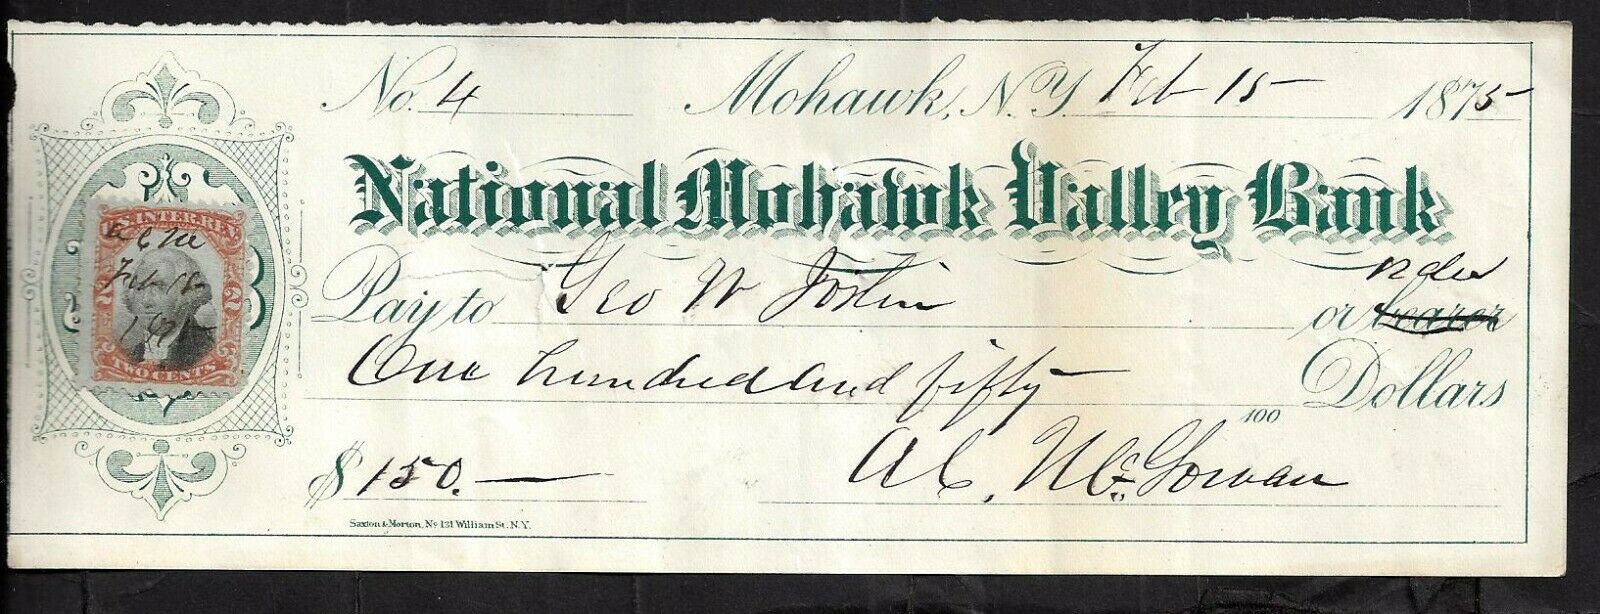 No. 4 Mohawk, N.Y. Feb 15 1875
National Mohawk Valley Bank
Pay to Geo W Joslin or bearer order
One hundred and fifty 100 Dollars
$150. A C. McGowan
Saxton & Morton, No 131 William St. N.Y.
U.S. INTER. REV.
A C Mc
Feb 15
1875
2 2
TWO CENTS